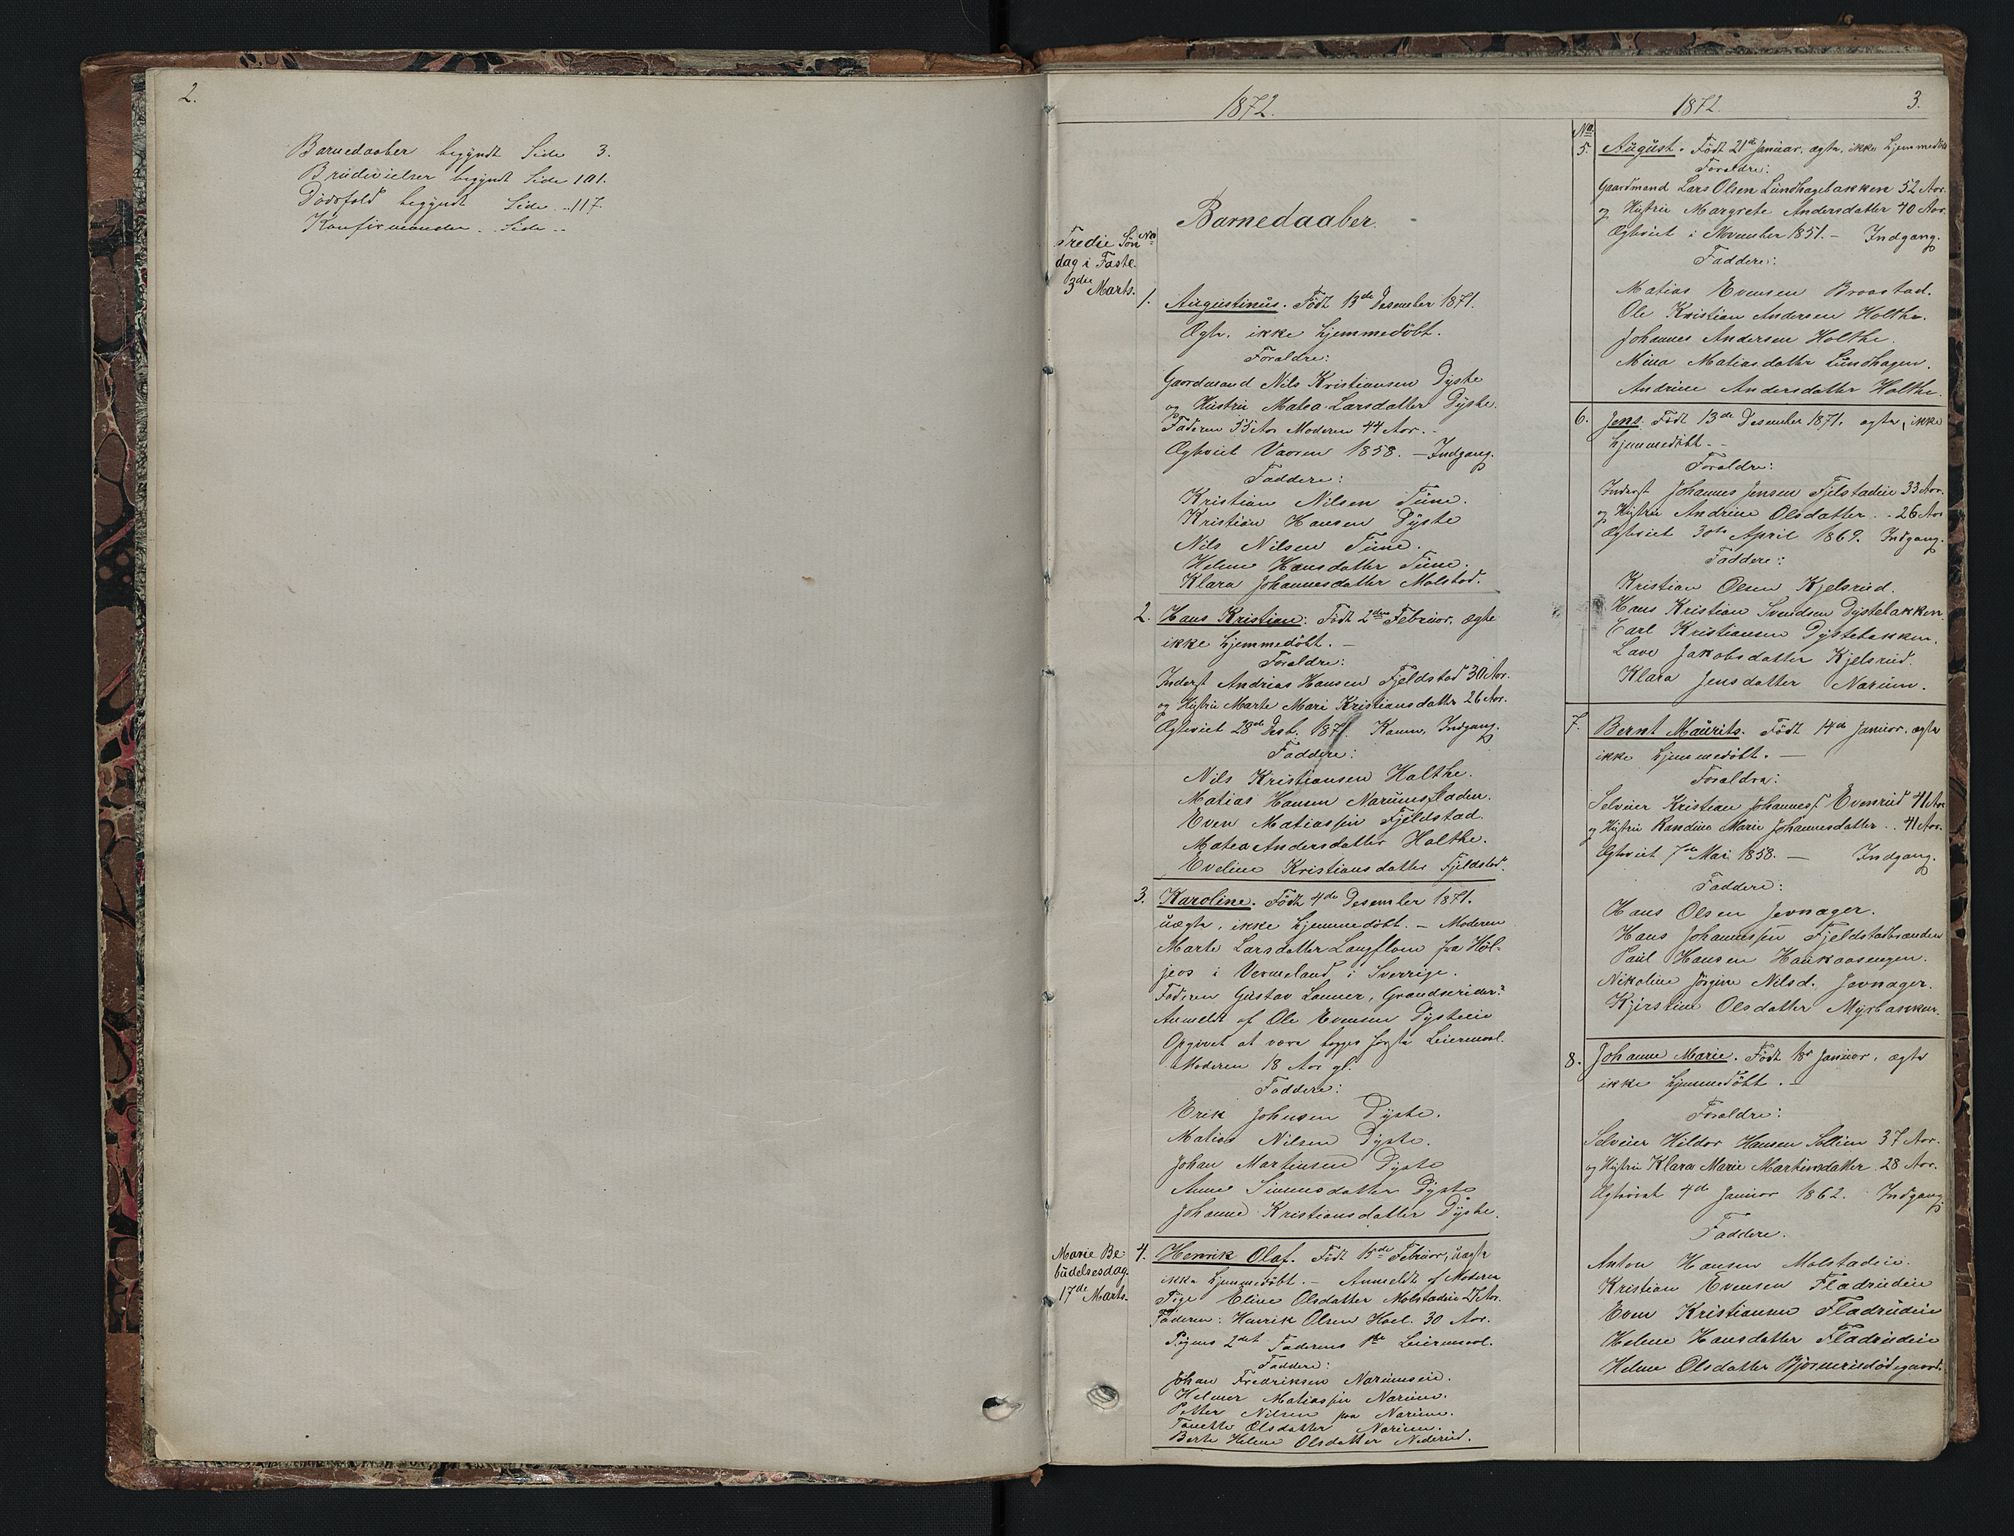 2.
Barnedaaber begyndt Side 3.
Brudevielser begyndt Side 101.
Dödsfald begyndt Side 117.
Konfirmander Side
1872.
Barnedaaber.
Tredie Søn
dag i Faste
3die Marts.
No
1. Augustinus. Født 13de Desember 1871.
Ægte, ikke hjemmedöbt.
Foraldre:
Gaardmand Nils Kristiansen Dyste
og Hustru Matea Larsdatter Dyste.
Faderen 55 Aar Moderen 44 Aar.
Ægtviet Vaaren 1858. – Indgang.
Faddere:
Kristian Nilsen Tune.
Kristian Hansen Dyste
Nils Nilsen Tune.
Helene Hansdatter Tune.
Klara Johannesdatter Molstad.
2. Hans Kristian: Født 2den Februar, ægte
ikke hjemmedöbt. –
Foraldre:
Inderst Andrias Hansen Fjeldstad 30 Aar.
og Hustru Marte Mari Kristiansdatter 26 Aar.
Ægtviet 28de 1871. Indgang.
Faddere:
Nils Kristiansen Holthe.
Matias Hansen Narumsfladen.
Even Matiassen Fjeldstad.
Matea Andersdatter Holthe.
Eveline Kristiansdatter Fjeldstad.
3. Karoline. Födt 4de Desember 1871.
uægte, ikke hjemmedöbt. – Moderen
Marte Larsdatter Langflom fra Höl-
jeos i Vermeland i Sverrige.
Faderen Gustav
Anmeldt af Ole Evensen Dysteeie
Opgivet at være begges förste Leiermaal.
Moderen 18 Aar gl.
Faddere:
Erik Johnsen Dyste.
Matias Nilsen Dyste.
Johan Martinsen Dyste
Anne Simensdatter Dyste
Johanne Kristiansdatter Dyste.
Marie Be
budelsesdag.
17de Marts.
4. Henrik Olaf. Født 15de Februar, uægte
ikke hjemmedöbt. – Anmeldt af Moderen
Pige Eline Olsdatter Molstadeie 25 Aar.
Faderen: Henrik Olsen Hoel. 30 Aar.
Pigens 2det Faderens 1ste Leiermaal.
Faddere:
Johan Fredriksen Narumseie.
Helmer Matiassen Narum.
Petter Nilsen paa Narum.
Tonette Olsdatter Narum.
Berte Helene Olsdatter Nederud.
1872. 3.
No
5. August. Födt 21de Januar, ægte, ikke hjemmedöbt
Foraldre:
Gaardmand Lars Olsen Lundhagebakken 52 Aar.
og Hustru Margrete Andersdatter 40 Aar.
Ægtviet i November 1851. – Indgang.
Faddere:
Matias Evensen Braastad.
Ole Kristian Andersen Holthe.
Johannes Andersen Holthe.
Mina Matiasdatter Lundhagen.
Andrine Andersdatter Holthe.
6. Jens. Födt 13de Desember 1871, ægte, ikke
hjemmedöbt. –
Foraldre:
Inderst Johannes Jensen Fjelstadeie 33 Aar.
og Hustru Andrine Olsdatter .. 26 Aar
Ægtviet 30te April 1869. Indgang.
Faddere:
Kristian Olsen Kjelsrud.
Hans Kristian Svendsen Dystebakken.
Carl Kristiansen Dystebakken.
Lave Jakobsdatter Kjelsrud.
Klara Jensdatter Narum.
7. Bernt Maurits. Födt 14de Januar, ægte
ikke hjemmedöbt. –
Foraldre:
Selveier Kristian Johanness. Evenrud 41 Aar
og Hustru Randine Marie Johannesdatter .. 41 Aar.
Ægtviet 7de Mai 1858. – Indgang.
Faddere:
Hans Olsen Jevnager.
Hans Johannessen Fjeldstadbraaden
Paul Hansen Haukaasengen.
Nikoline Jörgine Nilsd. Jevnager.
Kjerstine Olsdatter Myrbakken.
8. Johanne Marie. Födt 18de Januar, ægte
ikke hjemmedöbt. –
Foraldre:
Selveier Hildor Hansen Sollien 37 Aar.
og Hustru Klara Marie Martinsdatter 28 Aar.
Ægtviet 4de Januar 1862. Indgang
Faddere.
Anton Hansen Molstadeie.
Kristian Evensen Fladrudeie
Even Kristiansen Fladrudeie
Helene Hansdatter Fladrudeie
Helene Olsdatter Björnerudödegaard.